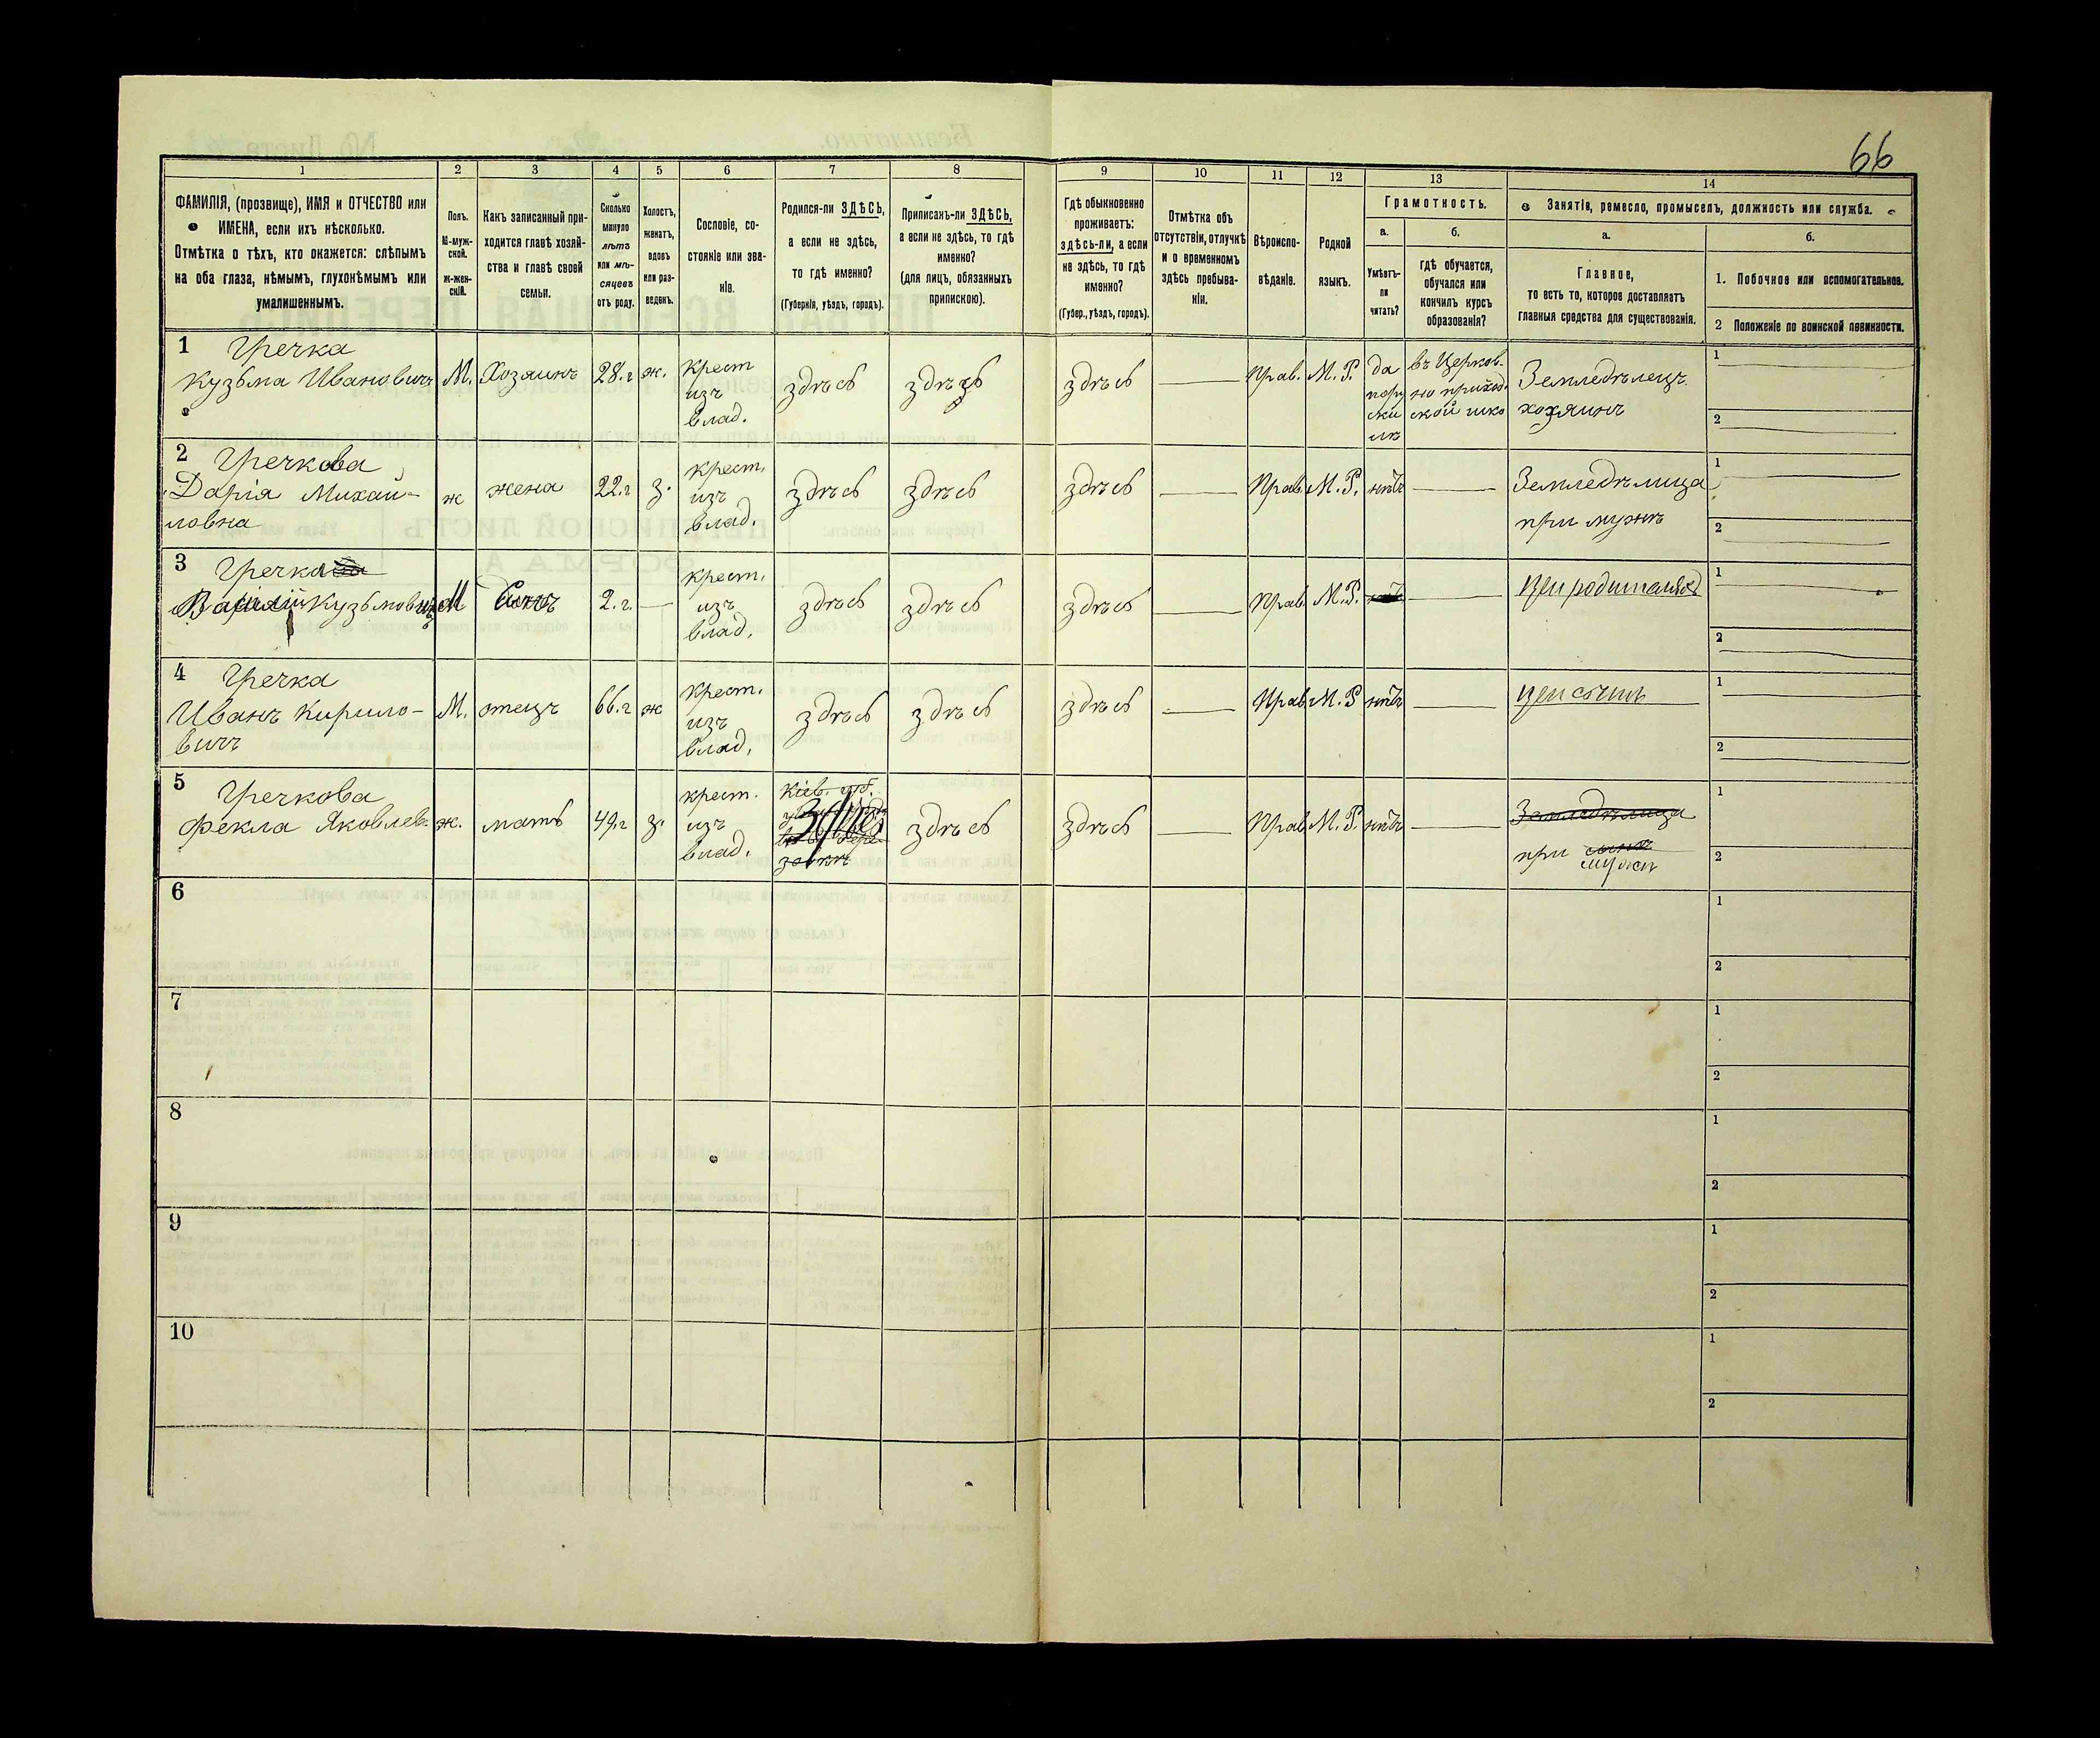 66
1 2 3 4 5 6 7 8 9 10 11 12 13 14
ФАМИЛІЯ, (прозвище), ИМЯ и ОТЧЕСТВО или
ИМЕНА, если ихъ нѣсколько.
Отмѣтка о тѣхъ, кто окажется: слѣпымъ
на оба глаза, нѣмымъ, глухонѣмымъ или
умалишеннымъ.
Полъ.
М-муж-
ской.
Ж-жен-
скій.
Какъ записанный при-
ходится главѣ хозяй-
ства и главѣ своей
семьи.
Сколько
минуло
лѣтъ
или мѣ-
сяцевъ
отъ роду.
Холостъ,
женатъ,
вдовъ
или раз-
веденъ.
Сословіе, со-
стояніе или зва-
ніе.
Родился-ли ЗДѢСЬ,
а если не здѣсь,
то гдѣ именно?
(Губернія, уѣздъ, городъ).
Приписанъ-ли ЗДѢСЬ,
а если не здѣсь, то гдѣ
именно?
(для лицъ, обязанныхъ
припискою).
Гдѣ обыкновенно
проживаетъ:
здѣсь-ли, а если
не здѣсь, то гдѣ
именно?
(Губер., уѣздъ, городъ).
Отмѣтка объ
отсутствіи, отлучкѣ
и о временномъ
здѣсь пребыва-
ніи.
Вѣроиспо-
вѣданіе.
Родной
языкъ.
Грамотность.
а.
Умѣетъ-
ли
читать?
б.
гдѣ обучается,
обучался или
кончилъ курсъ
образованія?
Занятіе, ремесло, промыселъ, должность или служба.
а.
Главное,
то есть то, которое доставляетъ
главныя средства для существованія.
б.
1. Побочное или вспомогательное.
2 Положеніе по воинской повинности.
1 Гречка
Кузьма Ивановичъ
М.
Хозяинъ
28.г
ж.
крест
изъ
влад.
здѣсь
здѣсь
здѣсь
Прав.
М.Р.
да
пору
ски
въ Церков-
но приход.
ской шко
лѣ
Земледѣлецъ
хозяинъ
1
2
2 Гречкова
Дарія Михай-
ловна
ж
жена
22.г
з.
крест.
изъ
влад.
здѣсь
здѣсь
здѣсь
Прав.
М.Р.
нѣтъ
Земледѣлица
при мужѣ
1
2
3 Гречка
Василій Кузьмовичъ
М
Сынъ
2.г.
крест.
изъ
влад.
здѣсь
здѣсь
здѣсь
Прав.
М.Р.
При родителяхъ
1
2
4 Гречка
Иванъ Кирило-
вичъ
М.
отецъ
66.г
ж
крест.
изъ
влад.
здѣсь
здѣсь
здѣсь
Прав.
М.Р
нѣтъ
При сынѣ
1
2
5 Гречкова
Фекла Яковлев.
ж.
мать
49.г
з.
крест.
изъ
влад.
Кіев. губ.
здѣсь
здѣсь
здѣсь
Прав.
М.Р.
нѣтъ
Земледѣлица
при сынѣ
мужѣ
1
2
6
1
2
7
1
2
8
1
2
9
1
2
10
1
2